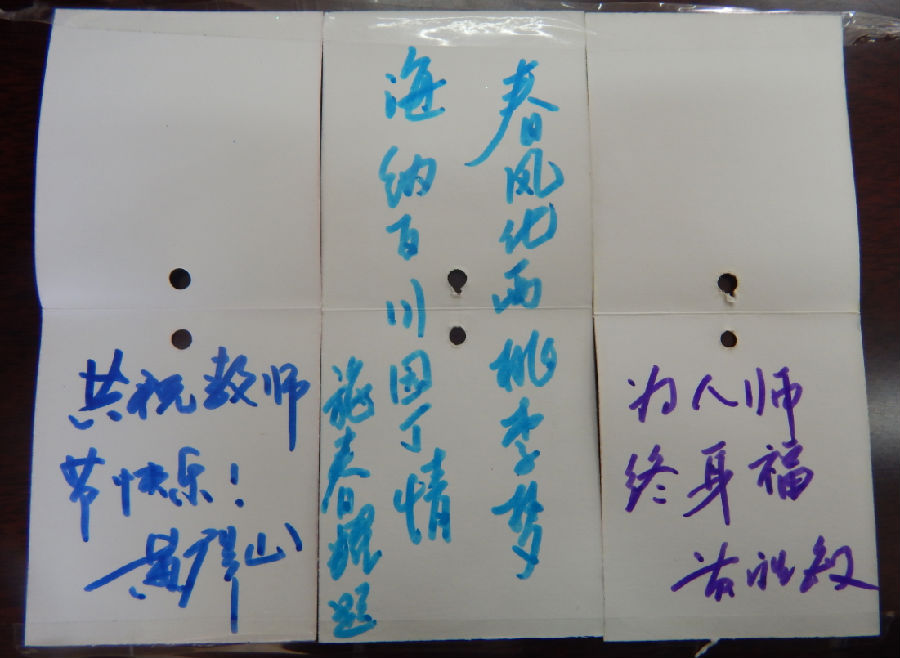 春风化雨桃李梦
海纳百川园丁情
春耀题
共祝教师
节快乐！
为人师
终身福